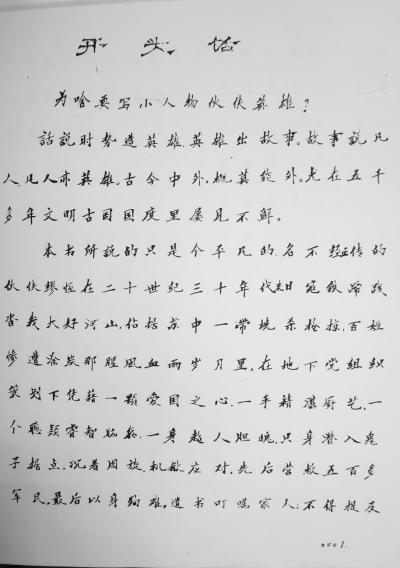 开头话
为啥要写小人物伙伕英雄？
話說时势造英雄、英雄出故事。故事說凡
人、凡人亦英雄。古今中外，概莫能外。光在五千
多年文明古国国度里屡见不鲜。
本书所說的只是个平凡的、名不经传的
伙伕缪恒在二十世纪三十年代末日寇铁蹄践
沓我大好河山，佔据苏中一带烧杀抢掠，百姓
惨遭涂炭那腥风血雨岁月里，在地下党组织
策划下凭藉一颗爱国之心，一手精湛厨艺，一
个聪颖睿智脑袋，一身超人胆魄，只身潜入鬼
子据点，沉着周旋，机敏应对，先后营救五百多
军民，最后以身殉难。遗书叮嘱家人：不得提及
2001.